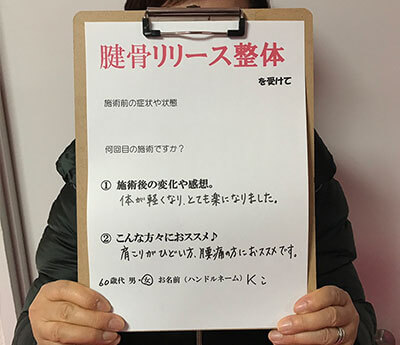 腱骨リリース整体
を受けて
施術前の症状や状態
何回目の施術ですか?
① 施術後の変化や感想。
体が軽くなり、とても楽になりました。
② こんな方々におススメ♪
肩こりがひどい方、腰痛の方におススメです。
60歳代 男・女 お名前(ハンドルネーム) Kこ